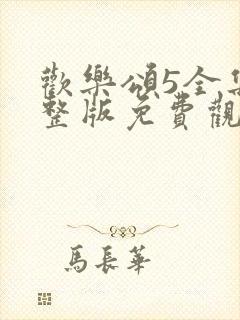 歡樂頌5全集
整版免費觀
馬長華